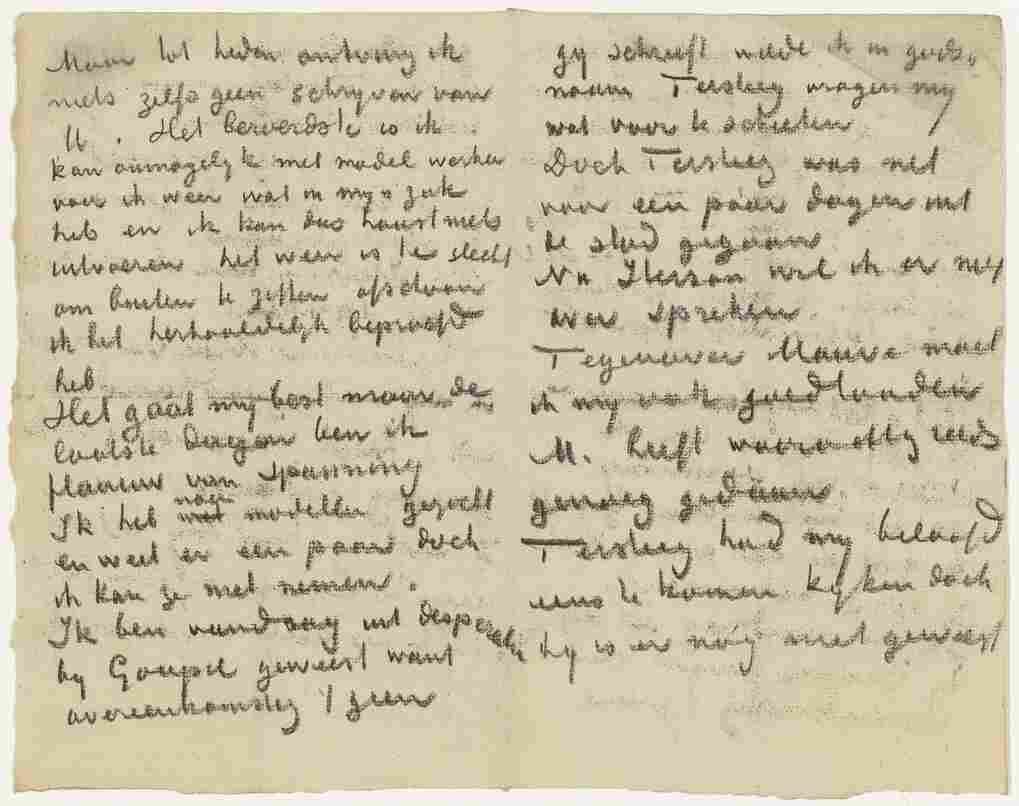 Maar tot heden ontving ik
niets zelfs geen schryven van
U. Het beroerdste is ik
kan onmogelyk met model werken
voor ik weer wat in myn zak
heb en ik kan dus haast niets
uitvoeren het weer is te slecht
om buiten te zitten ofschoon
ik het herhaaldelyk beproefd
heb
Het gaat my best maar de
laatste dagen ben ik
flaauw van spanning
Ik heb nogal modellen gezocht
en weet er een paar doch
ik kan ze niet nemen.
Ik ben vandaag uit desperatie
by Goupil geweest want
overeenkomstig 't geen
gy schreeft wilde ik in gods-
naam Tersteeg vragen my
wat voor te schieten
Doch Tersteeg was net
voor een paar dagen uit
de stad gegaan
Na Iterson wil ik er niet
over spreken.
Tegenover Mauve moet
ik my ook goed houden
M. heeft waarachtig reeds
genoeg gedaan.
Tersteeg had my beloofd
eens te komen kyken doch
hy is er nog niet geweest